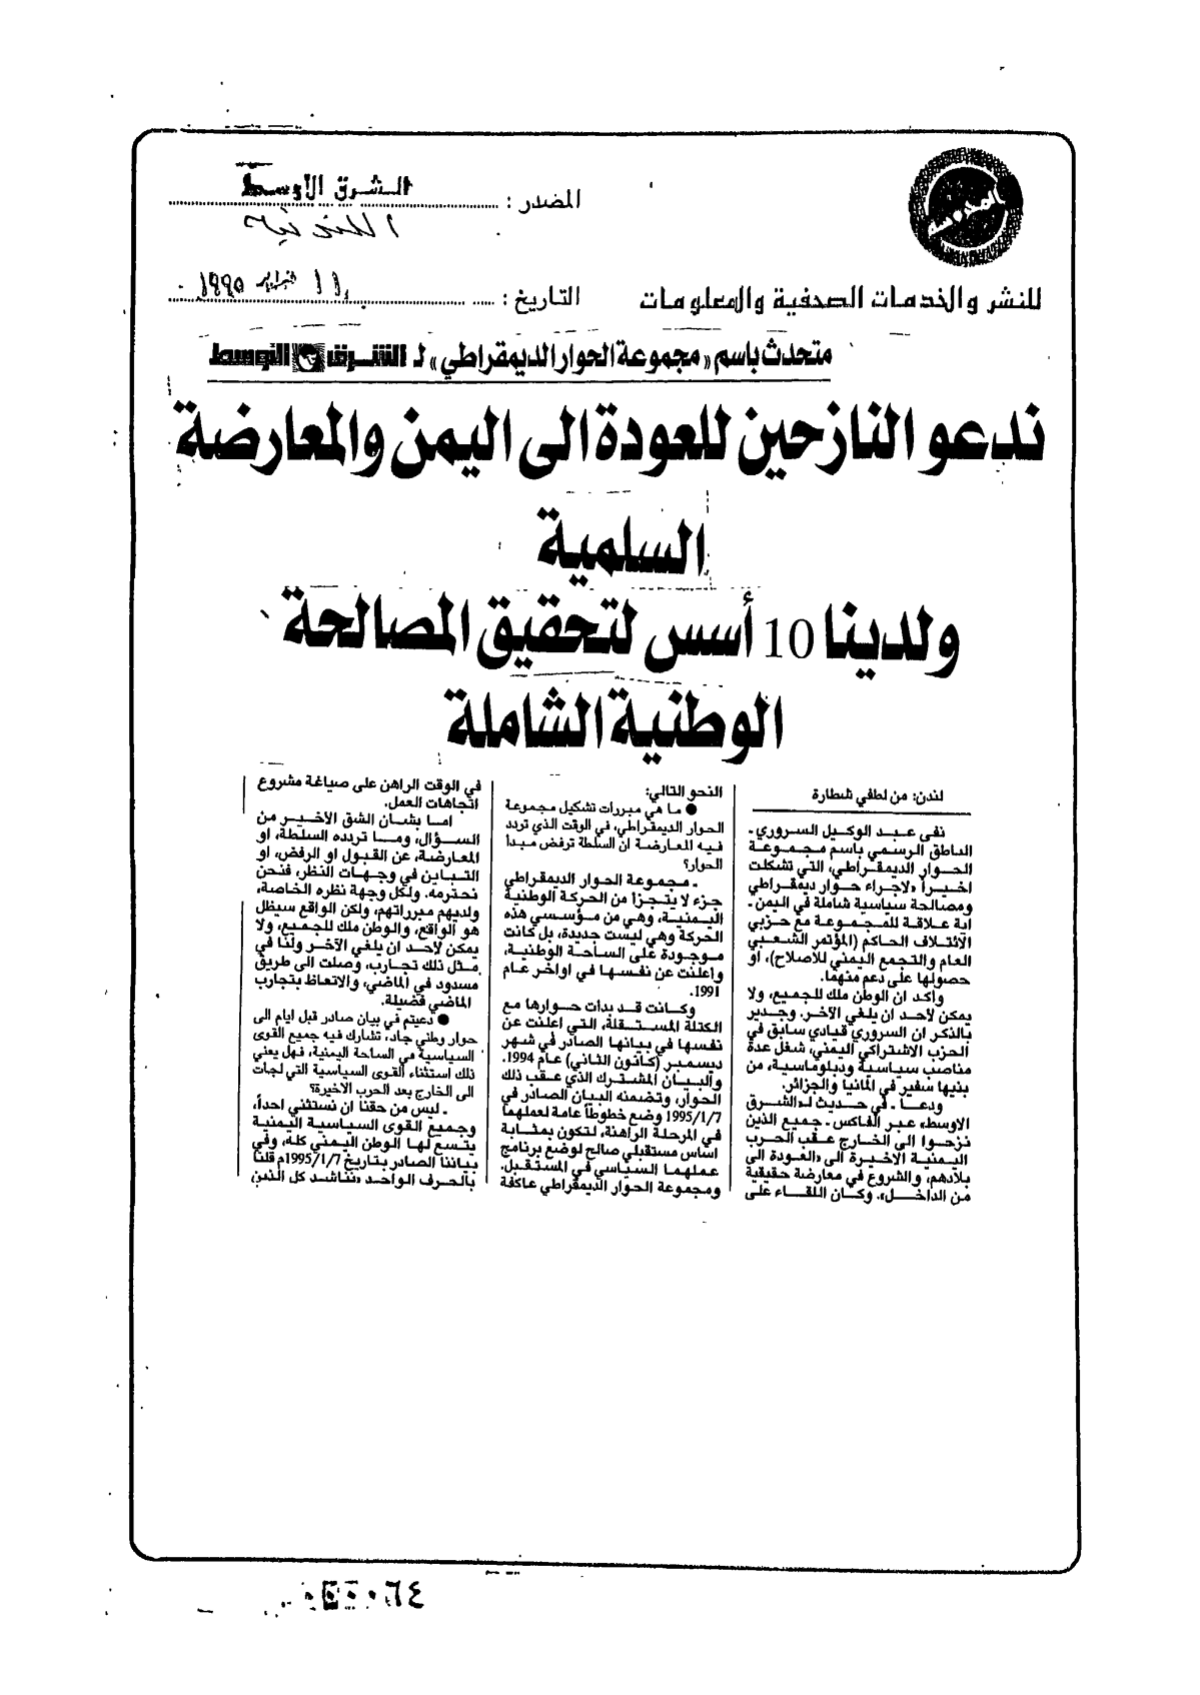 المحروسة
المصدر : الشرق الأوسط
اللندنية
للنشر والخدمات الصحفية والمعلومات
التاريخ : ١١ فبراير ١٩٩٥
متحدث باسم «مجموعة الحوار الديمقراطي» لـ الشرق الأوسط
ندعو النازحين للعودة الى اليمن والمعارضة
السلمية
ولدينا 10 أسس لتحقيق المصالحة
الوطنية الشاملة
لندن: من لطفي شطارة
نفى عبد الوكيل السروري -
الناطق الرسمي باسم مجموعة
الحوار الديمقراطي، التي تشكلت
اخيراً «لاجراء حوار ديمقراطي
ومصالحة سياسية شاملة في اليمن -
اية علاقة للمجموعة مع حزبي
الائتلاف الحاكم (المؤتمر الشعبي
العام والتجمع اليمني للاصلاح)، او
حصولها على دعم منهما.
وأكد ان الوطن ملك للجميع، ولا
يمكن لأحد ان يلغي الآخر. وجدير
بالذكر ان السروري قيادي سابق في
الحزب الاشتراكي اليمني، شغل عدة
مناصب سياسية ودبلوماسية، من
بنيها سفير في المانيا والجزائر.
ودعا - في حديث لـ«الشرق
الاوسط» عبر الفاكس - جميع الذين
نزحوا الى الخارج عقب الحرب
اليمنية الاخيرة الى «العودة الى
بلادهم، والشروع في معارضة حقيقية
من الداخل». وكان اللقاء على
النحو التالي:
● ما هي مبررات تشكيل مجموعة
الحوار الديمقراطي، في الوقت الذي تردد
فيه المعارضة ان السلطة ترفض مبدا
الحوار؟
- مجموعة الحوار الديمقراطي
جزء لا يتجزا من الحركة الوطنية
اليمنية، وهي من مؤسسي هذه
الحركة وهي ليست جديدة، بل كانت
موجودة على الساحة الوطنية،
واعلنت عن نفسها في اواخر عام
1991.
وكانت قد بدات حوارها مع
الكتلة المستقلة، التي اعلنت عن
نفسها في بيانها الصادر في شهر
ديسمبر (كانون الثاني) عام 1994.
والبيان المشترك الذي عقب ذلك
الحوار، وتضمنه البيان الصادر في
1995/1/7 وضع خطوطاً عامة لعملهما
في المرحلة الراهنة، لتكون بمثابة
اساس مستقبلي صالح لوضع برنامج
عملهما السياسي في المستقبل.
ومجموعة الحوار الديمقراطي عاكفة
في الوقت الراهن على صياغة مشروع
اتجاهات العمل.
اما بشان الشق الأخير من
السؤال، وما تردده السلطة، او
المعارضة، عن القبول او الرفض، او
التباين في وجهات النظر، فنحن
نحترمه. ولكل وجهة نظره الخاصة،
ولديهم مبرراتهم، ولكن الواقع سيظل
هو الواقع، والوطن ملك للجميع، ولا
يمكن لأحد ان يلغي الآخر ولنا في
مثل ذلك تجارب، وصلت الى طريق
مسدود في الماضي، والاتعاظ بتجارب
الماضي فضيلة.
● دعيتم في بيان صادر قبل ايام الى
حوار وطني جاد، تشارك فيه جميع القوى
السياسية في الساحة اليمنية، فهل يعني
ذلك استثناء القوى السياسية التي لجات
الى الخارج بعد الحرب الاخيرة؟
- ليس من حقنا ان نستثني احداً،
وجميع القوى السياسية اليمنية
يتسع لها الوطن اليمني كله، وفي
بياننا الصادر بتاريخ 1995/1/7م قلنا
بالحرف الواحد «نناشد كل الذين